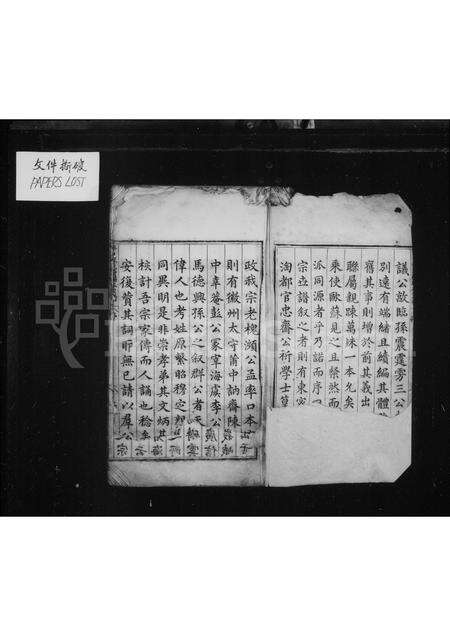 文件撕破
PAPERS LOST
議公啟臨孫震霆雱三公
別遠有端緒且續編其體
舊其事則增於前其義出
聯屬親踈萬殊一本允矣
乘使歐蘇見之且槩然而
派同源者乎乃諾而序
宗立譜叙之者則有東
淘都官忠齋公祈學士
政我宗老槐瀕公孟率口本
則有徽州太守莆中訥齋陳
中章菴彭公冢宰海虞李公
馬德興孫公之叙群公者天
偉人也考姓原繁昭穆定
同異明是非崇孝弟其文炳
核計吾宗家傳而人誦也稔
安後贊其詞耶無已請以羣公